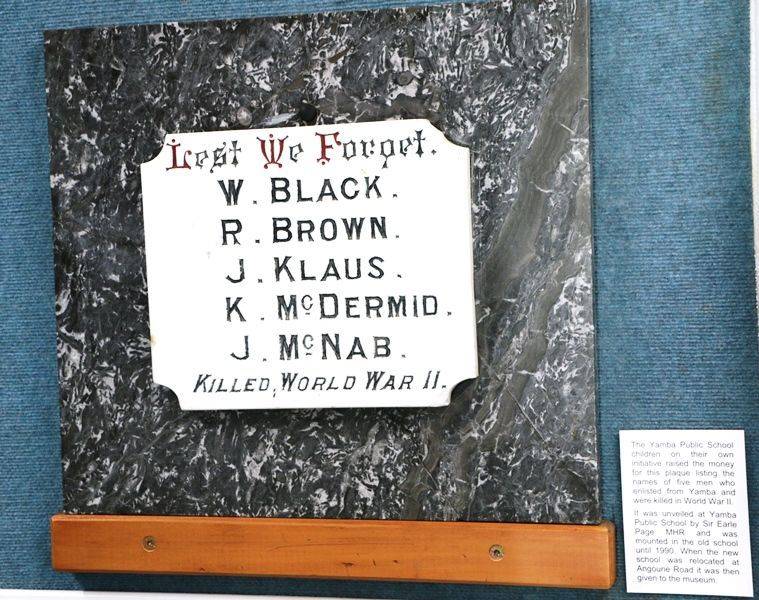 Lest We Forget.
W. BLACK.
R. BROWN.
J. KLAUS.
K. McDERMID.
J. McNAB.
KILLED, WORLD WAR II.
The Yamba Public School
children on their own
initiative raised the money
for this plaque listing the
names of five men who
enlisted from Yamba and
were killed in World War II.
It was unveiled at Yamba
Public School by Sir Earle
Page MHR and was
mounted in the old school
until 1990. When the new
school was relocated at
Angourie Road it was then
given to the museum.